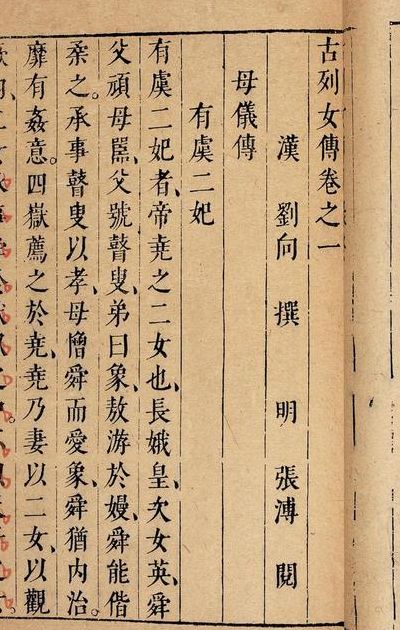 古列女傳卷之一
漢 劉向 撰 明 張溥 閱
母儀傳
有虞二妃
有虞二妃者、帝堯之二女也、長娥皇、次女英、舜
父頑母嚚、父號瞽叟、弟曰象、敖游於嫚、舜能偕
柔之。承事瞽叟以孝、母憎舜而愛象、舜猶內治。
靡有姦意。四嶽薦之於堯、堯乃妻以二女、以觀